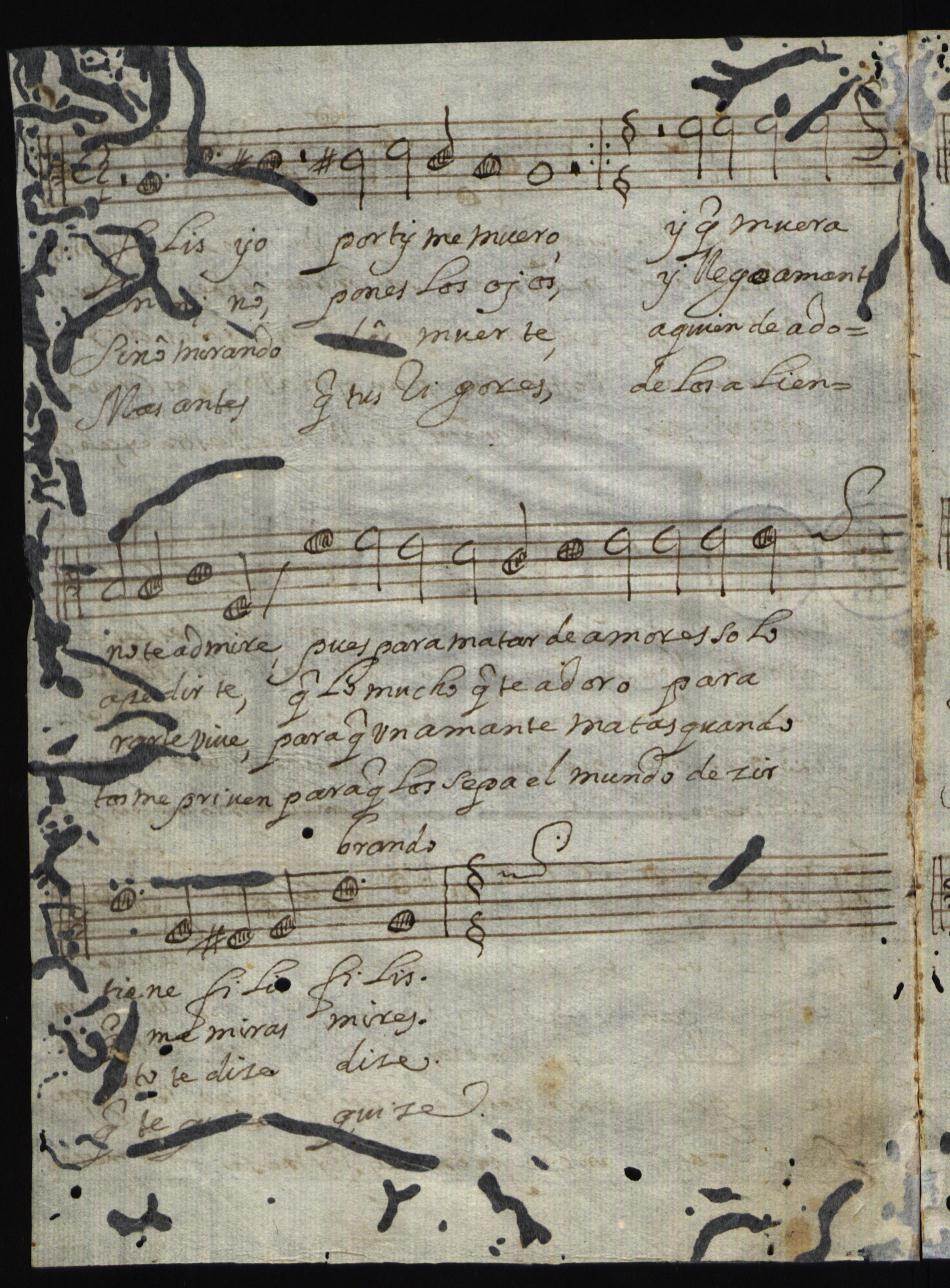 filis yo por ty me muero, y q̃ muera
nō, pones los ojos, y llego amant
Sinō mirando muerte, a quien de ado=
Mas antes q̃ tus Rigores, de los alien=
no te admire, pues para matar de amores solo
apedirte, q̃ lo mucho q̃ te adoro para
rarte vive, para q̃ un amante matas quando
tos me priven para q̃ los sepa el mundo dezir
brando
tiene fili filis.
q̃ me miras mires.
te dize dize.
q̃ te quize.